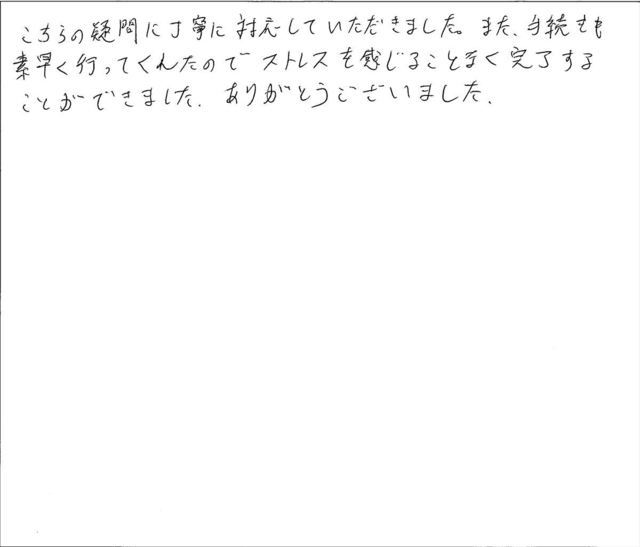 こちらの疑問に丁寧に対応していただきました。また、手続きも
素早く行ってくれたのでストレスを感じることなく完了する
ことができました。ありがとうございました。